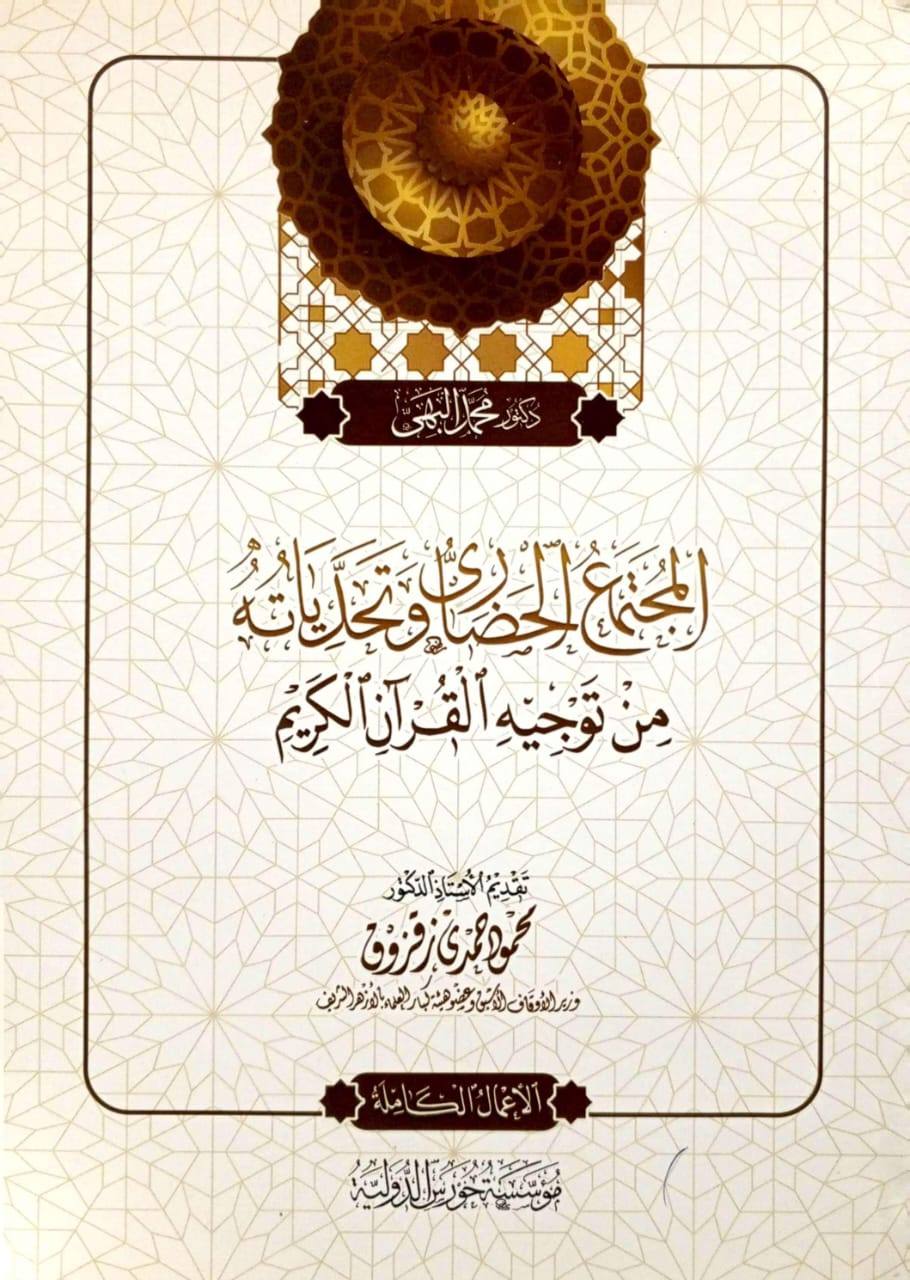 دكتور محمد البهي
المجتمع الحضاري وتحدياته
من توجيه القرآن الكريم
تقديم الأستاذ الدكتور
محمود حمدي زقزوق
وزير الأوقاف الأسبق وعضو هيئة كبار العلماء بالأزهر الشريف
الأعمال الكاملة
مؤسسة حورس الدولية